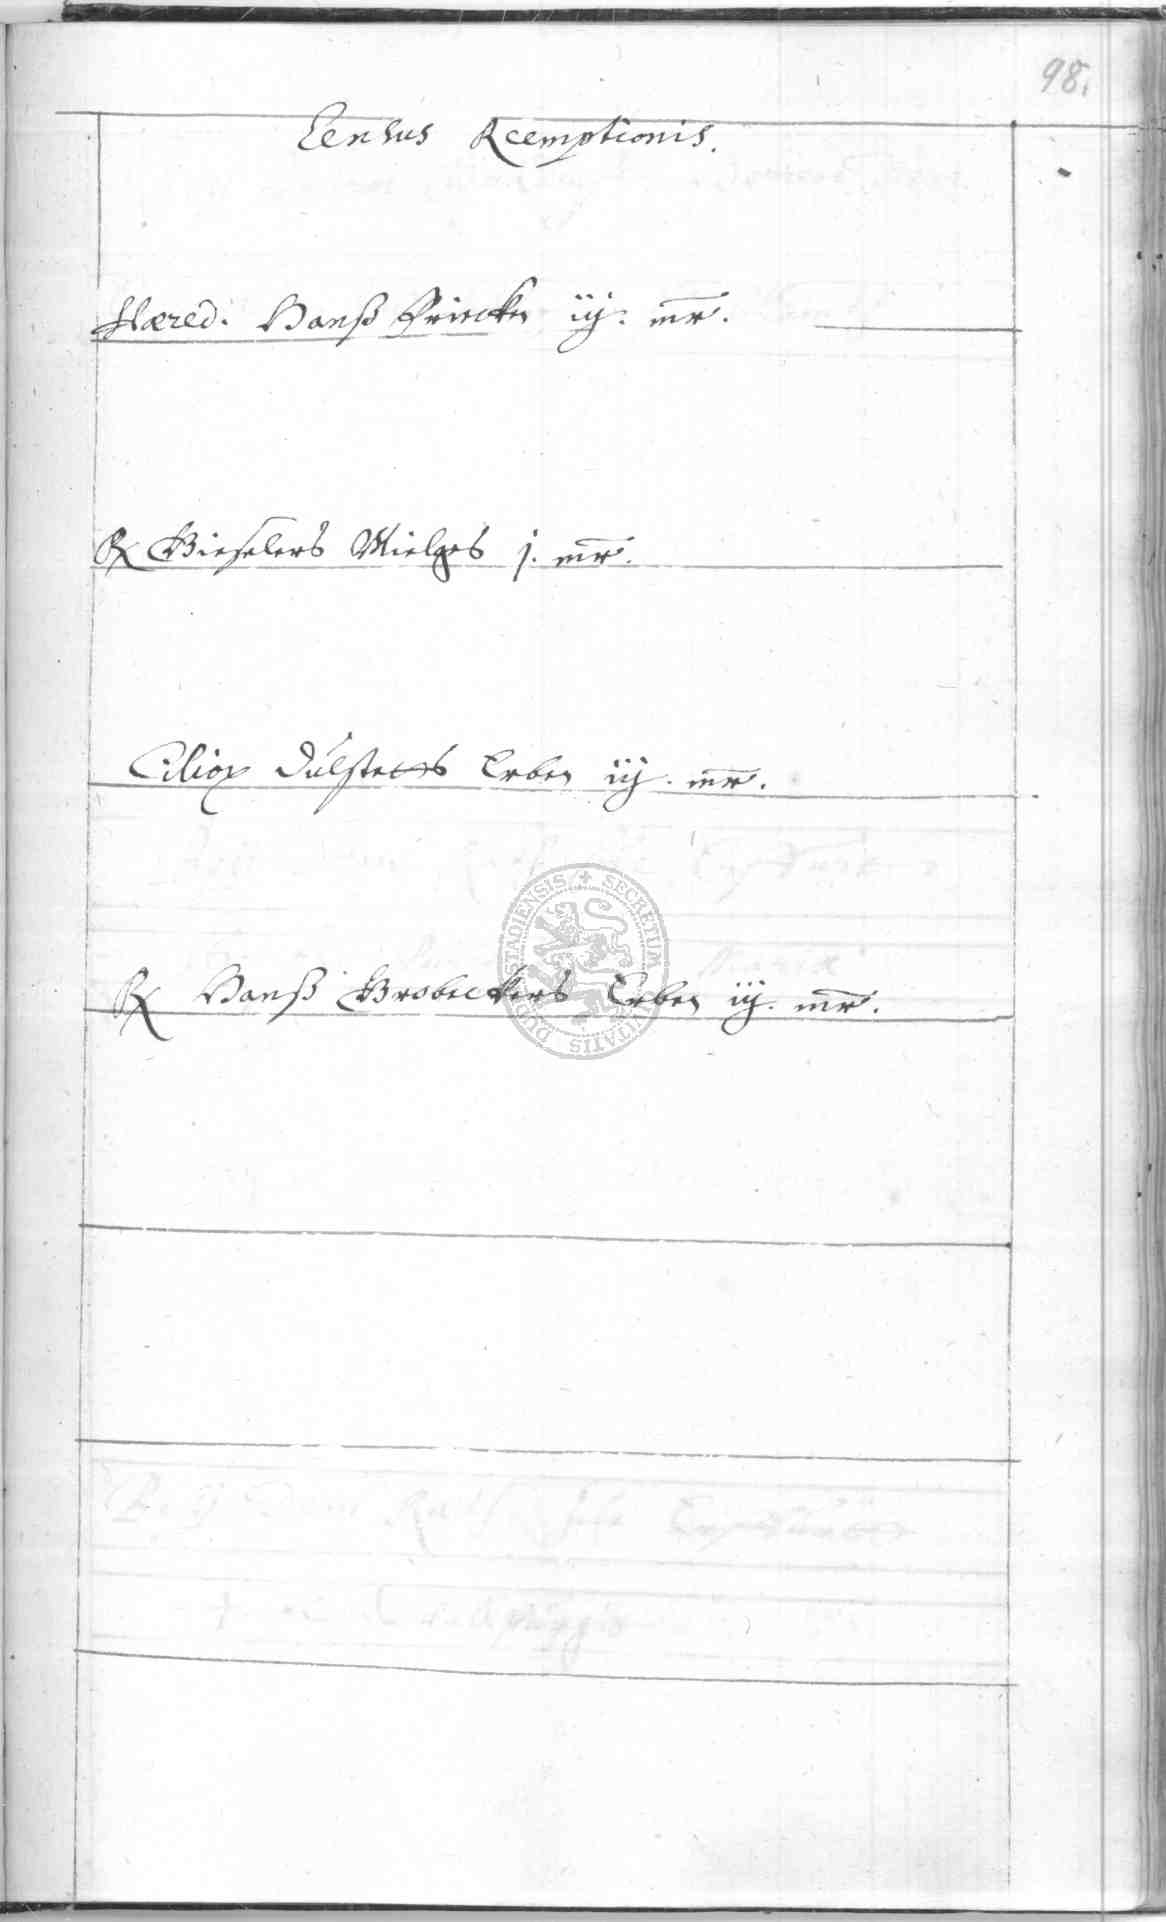 98.
Census Reemptionis.
Hæred. Hanß Friecken iij. mr.
Rx Gieselers Mielges j. mr.
Ciliax Dulstetts Erben iij. mr.
Rx Hanß Brobeckers Erben iij. mr.
SECRETUM CIVITATIS DUDERSTADIENSIS